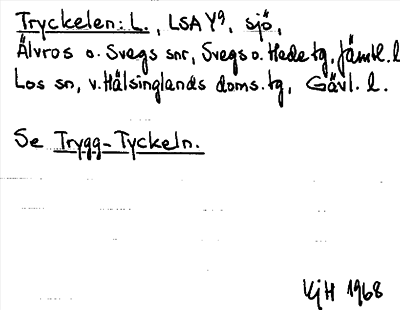 Tryckelen: L., LSA Y9, sjö,
Älvros o. Svegs snr, Svegs o. Hede tg, Jämtl. l
Los sn, v. Hälsinglands doms. tg, Gävl. l.
Se Trygg-Tyckeln.
KjH 1968